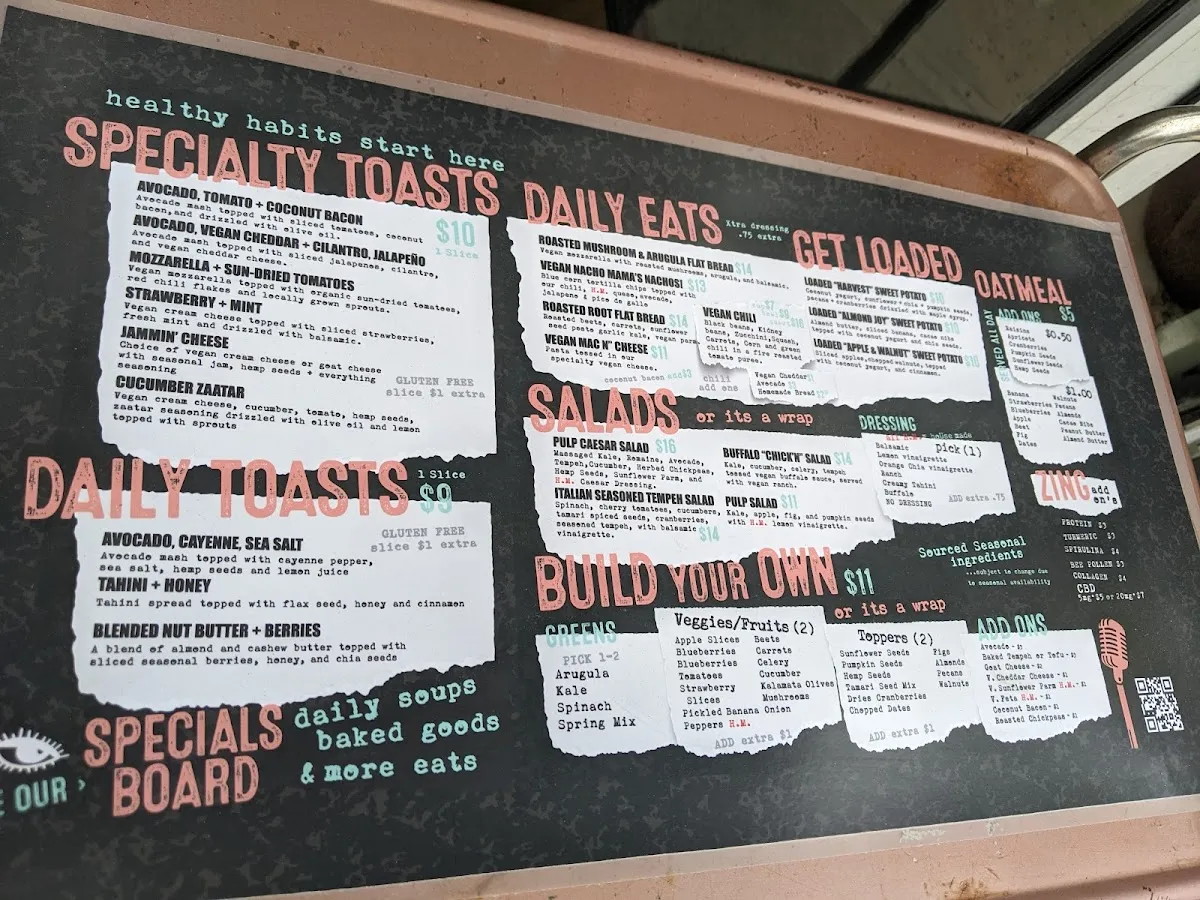 healthy habits start here
SPECIALTY TOASTS
$10
1 Slice
AVOCADO, TOMATO + COCONUT BACON
Avocado mash topped with sliced tomatoes, coconut
bacon, and drizzled with olive oil.
AVOCADO, VEGAN CHEDDAR + CILANTRO, JALAPEÑO
Avocado mash topped with sliced jalapenos, cilantro,
and vegan cheddar cheese.
MOZZARELLA + SUN-DRIED TOMATOES
Vegan mozzarella topped with organic sun-dried tomatoes,
red chili flakes and locally grown sprouts.
STRAWBERRY + MINT
Vegan cream cheese topped with sliced strawberries,
fresh mint and drizzled with balsamic.
JAMMIN' CHEESE
Choice of vegan cream cheese or goat cheese
with seasonal jam, hemp seeds + everything
seasoning
GLUTEN FREE
slice $1 extra
CUCUMBER ZAATAR
Vegan cream cheese, cucumber, tomato, hemp seeds,
zaatar seasoning drizzled with olive oil and lemon
topped with sprouts
DAILY TOASTS
1 Slice
$9
GLUTEN FREE
slice $1 extra
AVOCADO, CAYENNE, SEA SALT
Avocado mash topped with cayenne pepper,
sea salt, hemp seeds and lemon juice
TAHINI + HONEY
Tahini spread topped with flax seed, honey and cinnamon
BLENDED NUT BUTTER + BERRIES
A blend of almond and cashew butter topped with
sliced seasonal berries, honey, and chia seeds
E OUR ›
SPECIALS
BOARD
daily soups
baked goods
& more eats
DAILY EATS
Xtra dressing
.75 extra
ROASTED MUSHROOM & ARUGULA FLAT BREAD $14
Vegan mozzarella with roasted mushrooms, arugula, and balsamic.
VEGAN NACHO MAMA'S NACHOS! $13
Blue corn tortilla chips topped with
our chili, H.M. queso, avocado,
jalapeno & pico de gallo
ROASTED ROOT FLAT BREAD $14
Roasted beets, carrots, sunflower
seed pesto garlic kale, vegan parm
VEGAN MAC N" CHEESE $11
Pasta tossed in our
specialty vegan cheese.
coconut bacon add $3
VEGAN CHILI
Black beans, Kidney
beans, Zucchini, Squash,
Carrots, Corn and green
chili in a fire roasted
tomato puree.
chili
add ons
Vegan Cheddar
Avocado
Homemade Bread
GET LOADED
LOADED "HARVEST" SWEET POTATO $10
Coconut yogurt, sunflower + chia + pumpkin seeds,
pecans + cranberries drizzled with maple syrup.
LOADED "ALMOND JOY" SWEET POTATO $10
Almond butter, sliced banana, cacao nibs
topped with coconut yogurt and chia seeds.
LOADED "APPLE & WALNUT" SWEET POTATO $10
Sliced apples, chopped walnuts, topped
with coconut yogurt, and cinnamon.
OATMEAL
$5
ADD ONS
SERVED ALL DAY
$0.50
Raisins
Apricots
Cranberries
Pumpkin Seeds
Sunflower Seeds
Hemp Seeds
$1.00
Banana
Strawberries
Blueberries
Apple
Beet
Fig
Dates
Walnuts
Pecans
Almonds
Cacao Nibs
Peanut Butter
Almond Butter
SALADS
or its a wrap
PULP CAESAR SALAD $16
Massaged Kale, Romaine, Avocado,
Tempeh, Cucumber, Herbed Chickpeas,
Hemp Seeds, Sunflower Parm, and
H.M. Caesar Dressing.
ITALIAN SEASONED TEMPEH SALAD
Spinach, cherry tomatoes, cucumbers,
tamari spiced seeds, cranberries,
seasoned tempeh, with balsamic
vinaigrette.
$14
BUFFALO "CHICK'N" SALAD $14
Kale, cucumber, celery, tempeh
tossed vegan buffalo sauce, served
with vegan ranch.
PULP SALAD $11
Kale, apple, fig, and pumpkin seeds
with H.M. lemon vinaigrette.
DRESSING
all H.M. house made
pick (1)
Balsamic
Lemon vinaigrette
Orange Chia vinaigrette
Ranch
Creamy Tahini
Buffalo
NO DRESSING
ADD extra .75
ZING add
on's
PROTEIN $3
TURMERIC $3
SPIRULINA $4
BEE POLLEN $3
COLLAGEN $4
CBD
5mg*$5 or 20mg*$7
Sourced Seasonal
ingredients
...subject to change due
to seasonal availability
BUILD YOUR OWN $11
or its a wrap
GREENS
PICK 1-2
Arugula
Kale
Spinach
Spring Mix
Veggies/Fruits (2)
Apple Slices
Blueberries
Blueberries
Tomatoes
Strawberry
Slices
Pickled Banana
Peppers H.M.
Beets
Carrots
Celery
Cucumber
Kalamata Olives
Mushrooms
Onion
ADD extra $1
Toppers (2)
Sunflower Seeds
Pumpkin Seeds
Hemp Seeds
Tamari Seed Mix
Dries Cranberries
Chopped Dates
Figs
Almonds
Pecans
Walnuts
ADD extra $1
ADD ONS
Avocado - $2
Baked Tempeh or Tofu - $2
Goat Cheese - $2
V.Cheddar Cheese - $1
V.Sunflower Parm H.M. - $1
V.Feta H.M. - $1
Coconut Bacon - $1
Roasted Chickpeas - $1